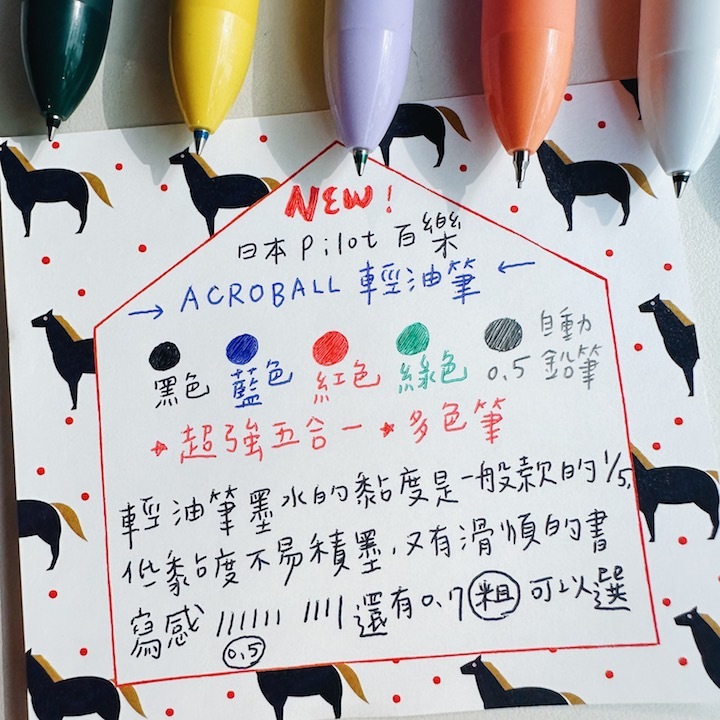 NEW!
日本 Pilot 百樂
→ ACROBALL 輕油筆 ←
黑色 藍色 紅色 綠色 0.5 自動鉛筆
★超強五合一★多色筆
輕油筆墨水的黏度是一般款的1/5,
低黏度不易積墨,又有滑順的書
寫感 ////// //// 還有0.7 粗 可以選
0.5